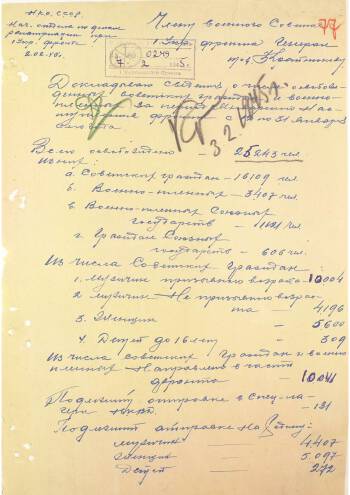 НКО СССР
Нач. отдела по делам
репатриации при
1 Укр. фронте
2.02.45 г.
Члену Военного Совета
77
1 Укр. фронта Генерал
тов.
0249
7 2 1945 г.
1 Украинского Фронта
Докладываю сведения о числе освобо-
жденных советских граждан и военно-
пленных за период
фронта с по 31 января
3 2 1945 г.
Всего освобождено — 25243 чел.
из них:
а. Советских граждан — 16109 чел.
б. Военно-пленных — 3407 чел.
в. Военно-пленных Союзных
государств — чел.
г. Граждан Союзных
государств — 606 чел.
Из числа Советских граждан
1. Мужчин призывного возраста — 10004
2. мужчин не призывного возра-
ста — 4196
3. Женщин — 5600
4. Детей до 16 лет — 309
Из числа советских граждан и военно
пленных направлено в части
фронта — 10041
Подлежит отправке в спец-ла-
геря НКВД — 131
Подлежит отправке на Родину:
мужчин — 4407
женщин — 5.097
детей — 272